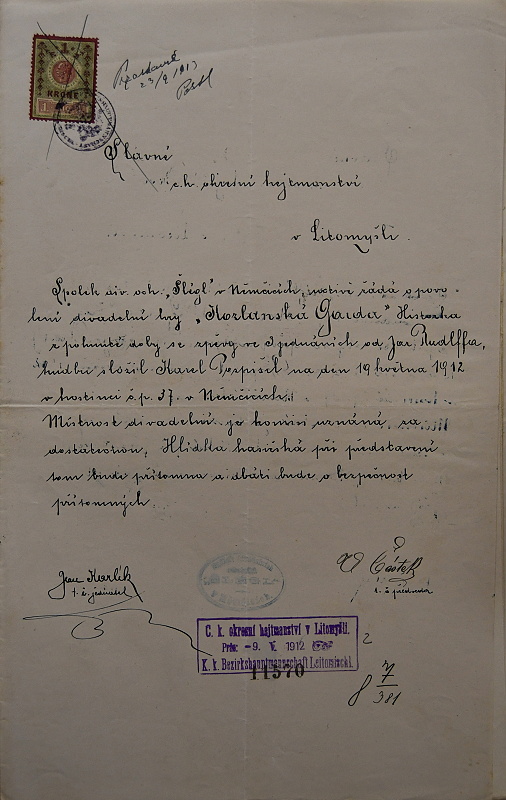 1
KRONE
23/9 1913
Slavné
c.k. okresní hejtmanství
v Litomyšli.
Spolek div. och. „Šlégl" v Němčicích, uctivě žádá o povo-
lení divadelní hry „Kozlanská Garda" Historka
z pohnuté doby se zpěvy ve 3 jednáních od Jar. Rudlffa,
hudbu složil Karel Pospíšil na den 19 května 1912
v hostinci č.p. 37. v Němčicích.
Místnost divadelní je komisí uznána, za
dostatečnou, Hlídka hasičská při představení
tom bude přítomna a dbáti bude o bezpečnost
přítomných.
Jan Karlík
t. č. jednatel
Částek
t. č. předseda
C. k. okresní hejtmanství v Litomyšli.
Präs: -9. V. 1912
K. k. Bezirkshauptmannschaft Leitomischl.
11570
2
8 7/381